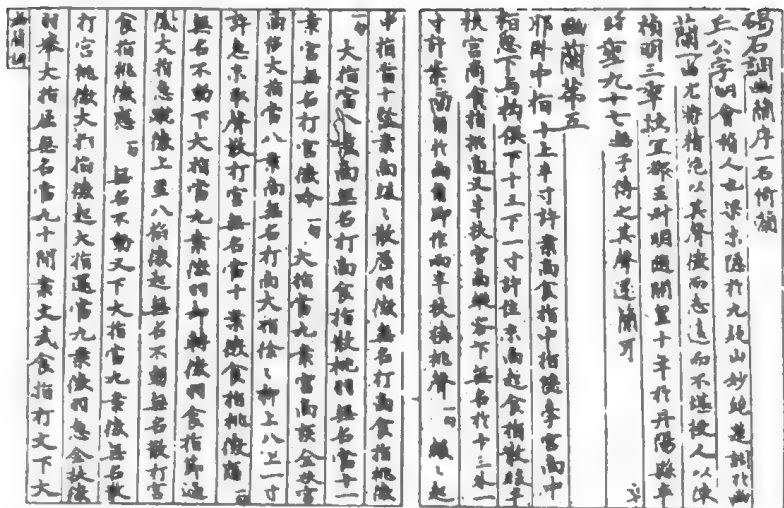 碣石調幽蘭序一名倚蘭
丘公字明會稽人也梁末隱於九疑山妙絕楚調於幽
蘭一曲尤特精絕以其聲微而志遠而不堪授人以陳
禎明三年授宜都王叔明隨開皇十年於丹陽縣卒
年九十七無子傳之其聲遂簡耳
幽蘭第五
耶臥中指十上半寸許案商食指中指雙牽宮商中
指急下与拘俱下十三下一寸許住末商起食指散緩半
扶宮商食指挑商又半扶宮商縱容下無名於十三外一
寸許案商角於商角即作兩半扶挾挑聲一句緩々起
中指當十案商緩々散歷羽徵無名打商食指挑徵
一句大指當八案商無名打商食指散挑羽無名當十一
案宮無名打宮徵 一句大指當九案宮商疾全扶宮
商 大指當八案商無名打商大指徐々抑上八上一寸
許急末取聲散打宮無名當十案徵食指挑徵 一句
無名不動下大指當九案徵羽却轉徵羽食指節過
徵大指急蹴徵上至八 徵起無名不動無名散打宮
食指挑徵應一句無名不動又下大指當九案徵無名散
打宮挑徵大指 徵起大指還當九案徵羽急全扶徵
羽 大指 無名當九十間案文武食指打文下大
幽蘭調